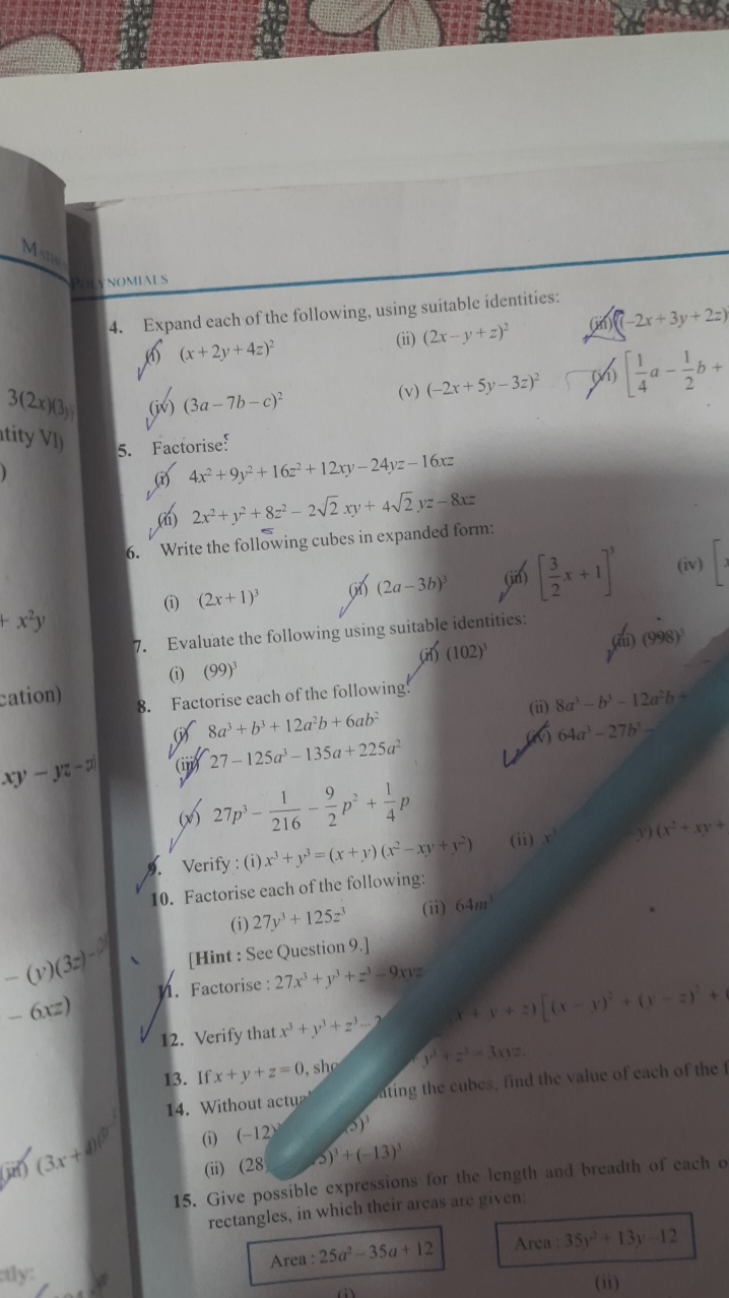 POLYNOMIALS
4. Expand each of the following, using suitable identities:
(i) (x + 2y + 4z)² (ii) (2x – y + z)² (iii) (–2x + 3y + 2z)
(iv) (3a – 7b – c)² (v) (–2x + 5y – 3z)² (vi) [1/4 a – 1/2 b +
5. Factorise:
(i) 4x² + 9y² + 16z² + 12xy – 24yz – 16xz
(ii) 2x² + y² + 8z² – 2√2 xy + 4√2 yz – 8xz
6. Write the following cubes in expanded form:
(i) (2x + 1)³ (ii) (2a – 3b)³ (iii) [3/2 x + 1]³ (iv) [
7. Evaluate the following using suitable identities:
(i) (99)³ (ii) (102)³ (iii) (998)³
8. Factorise each of the following:
(i) 8a³ + b³ + 12a²b + 6ab² (ii) 8a³ – b³ – 12a²b
(iii) 27 – 125a³ – 135a + 225a² (iv) 64a³ – 27b³
(v) 27p³ – 1/216 – 9/2 p² + 1/4 p
9. Verify : (i) x³ + y³ = (x + y) (x² – xy + y²) (ii) y) (x² + xy +
10. Factorise each of the following:
(i) 27y³ + 125z³ (ii) 64m
[Hint : See Question 9.]
11. Factorise : 27x³ + y³ + z³ – 9xyz
12. Verify that x³ + y³ + z³ – + y + z) [(x – y)² + (y – z)² +
13. If x + y + z = 0, y³ + z³ = 3xyz.
14. Without the cubes, find the value of each of the
(i) (–12)
(ii) (28) + (–13)³
15. Give possible expressions for the length and breadth of each
rectangles, in which their areas are given:
Area : 25a² – 35a + 12 Area : 35y² + 13y –12
(i) (ii)
3(2x)(3y)
tity VI)
)
+ x²y
cation)
xy – yz –
– (y)(3z) –
– 6xz)
(iii) (3x + 4)
ctly: